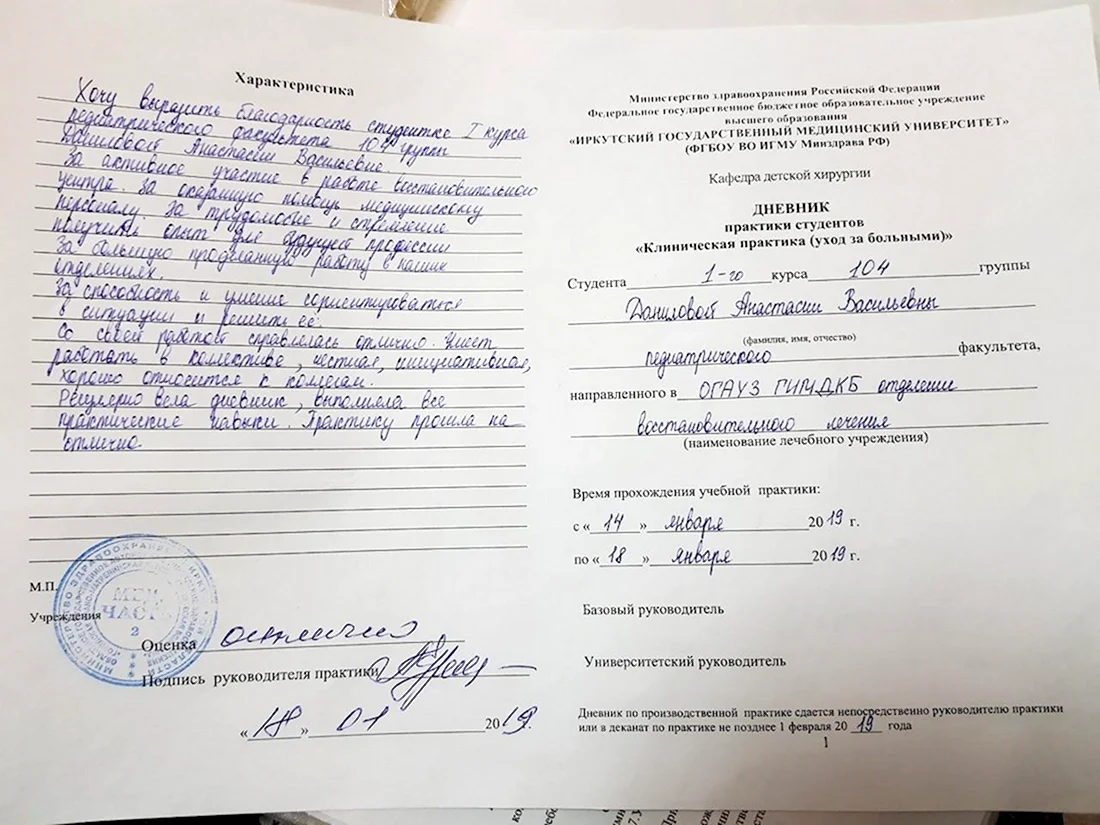 Характеристика
Хочу выразить благодарность студентке I курса
педиатрического факультета 104 группы
Даниловой Анастасии Васильевне.
За активное участие в работе восстановительного
центра. За оказанную помощь медицинскому
персоналу. За трудолюбие и стремление
получить опыт для будущей профессии
За большую проделанную работу в наших
отделениях.
За способность и умение сориентироваться
в ситуации и решить её.
Со своей работой справлялась отлично. Умеет
работать в коллективе, честная, инициативная,
хорошо относится к коллегам.
Регулярно вела дневник, выполняла все
практические навыки. Практику прошла на
отлично
М.П.
Учреждения
МЕД.
ЧАСТЬ
2
Оценка отлично
Подпись руководителя практики
«18» 01 2019.
Министерство здравоохранения Российской Федерации
Федеральное государственное бюджетное образовательное учреждение
высшего образования
«ИРКУТСКИЙ ГОСУДАРСТВЕННЫЙ МЕДИЦИНСКИЙ УНИВЕРСИТЕТ»
(ФГБОУ ВО ИГМУ Минздрава РФ)
Кафедра детской хирургии
ДНЕВНИК
практики студентов
«Клиническая практика (уход за больными)»
Студента 1-го курса 104 группы
Даниловой Анастасии Васильевны
(фамилия, имя, отчество)
педиатрического факультета,
направленного в ОГАУЗ ГИМДКБ отделение
восстановительного лечения
(наименование лечебного учреждения)
Время прохождения учебной практики:
с «14» января 2019 г.
по «18» января 2019 г.
Базовый руководитель
Университетский руководитель
Дневник по производственной практике сдается непосредственно руководителю практики
или в деканат по практике не позднее 1 февраля 2019 года
1